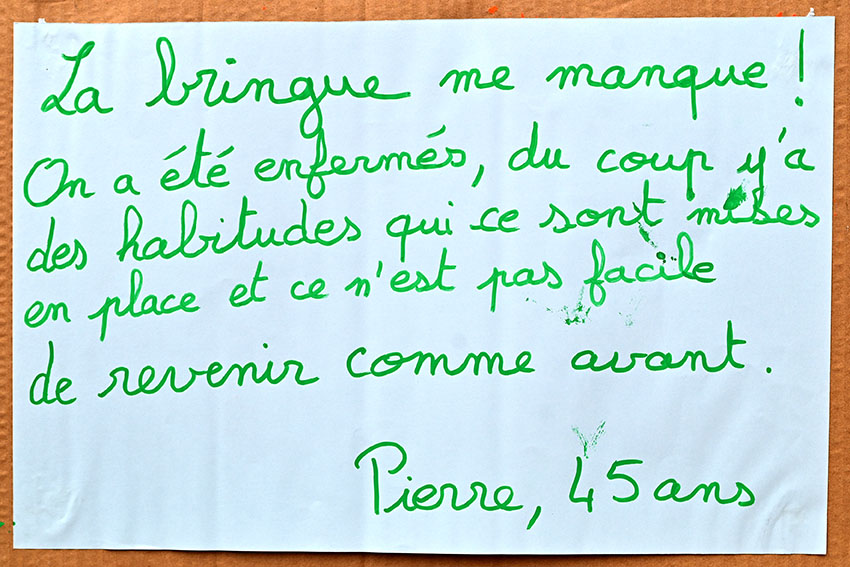 La bringue me manque !
On a été enfermés, du coup y'a
des habitudes qui ce sont mises
en place et ce n'est pas facile
de revenir comme avant.
Pierre, 45 ans